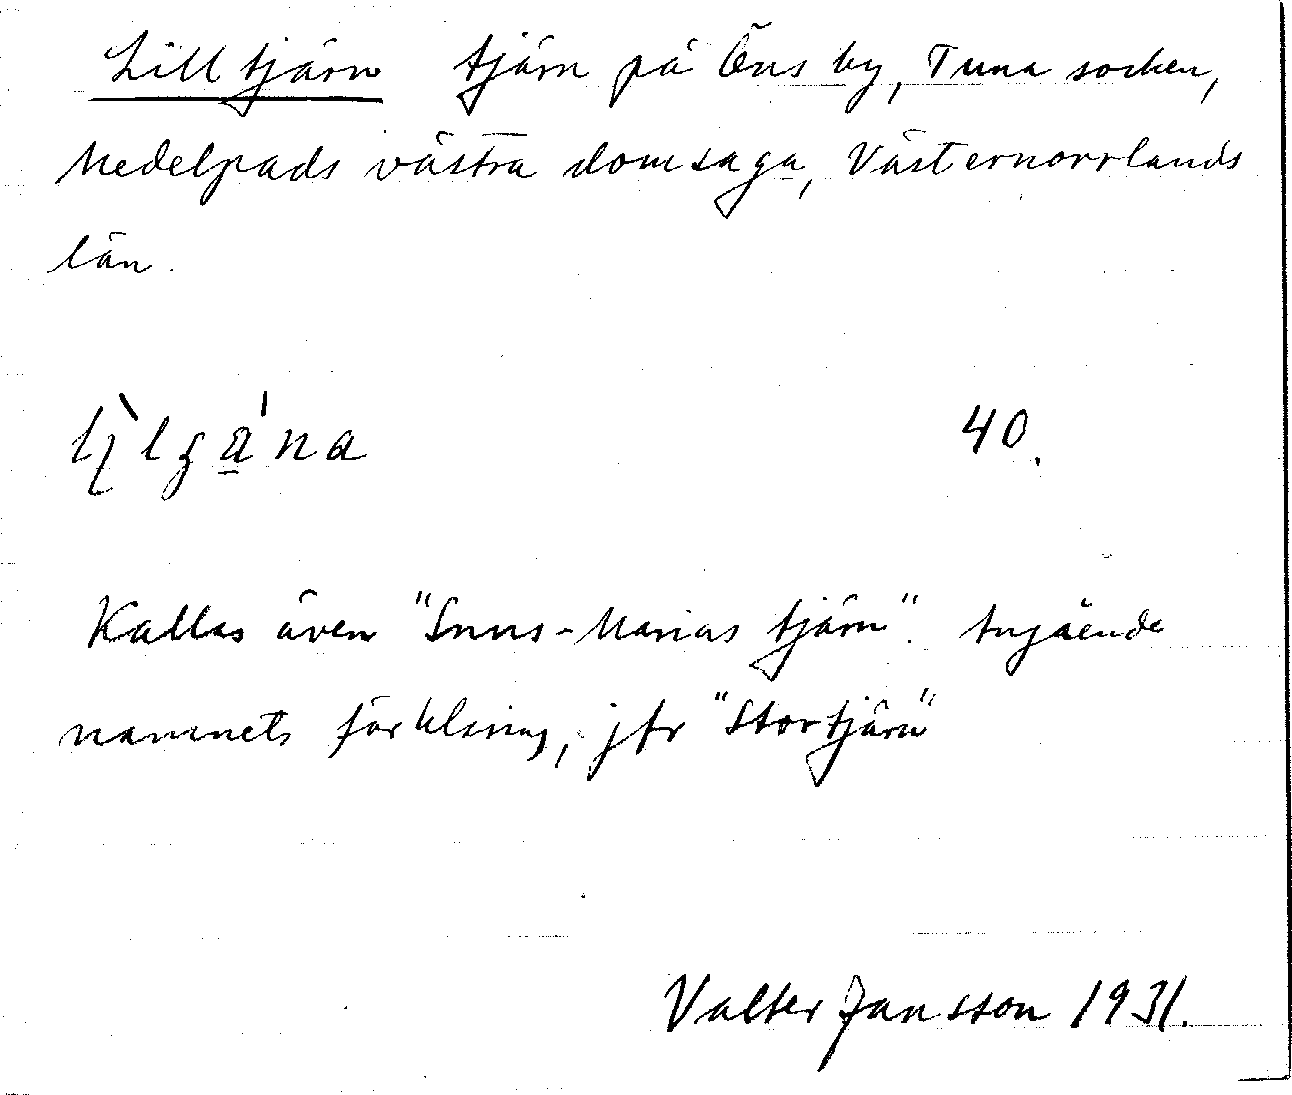 Lilltjärn tjärn på Öns by, Tuna socken,
Medelpads västra domsaga, Västernorrlands
län.
40.
Kallas även "Snus-Marias tjärn". Angående
namnets förklaring, jfr "Stortjärn"
Valter Jansson 1931.